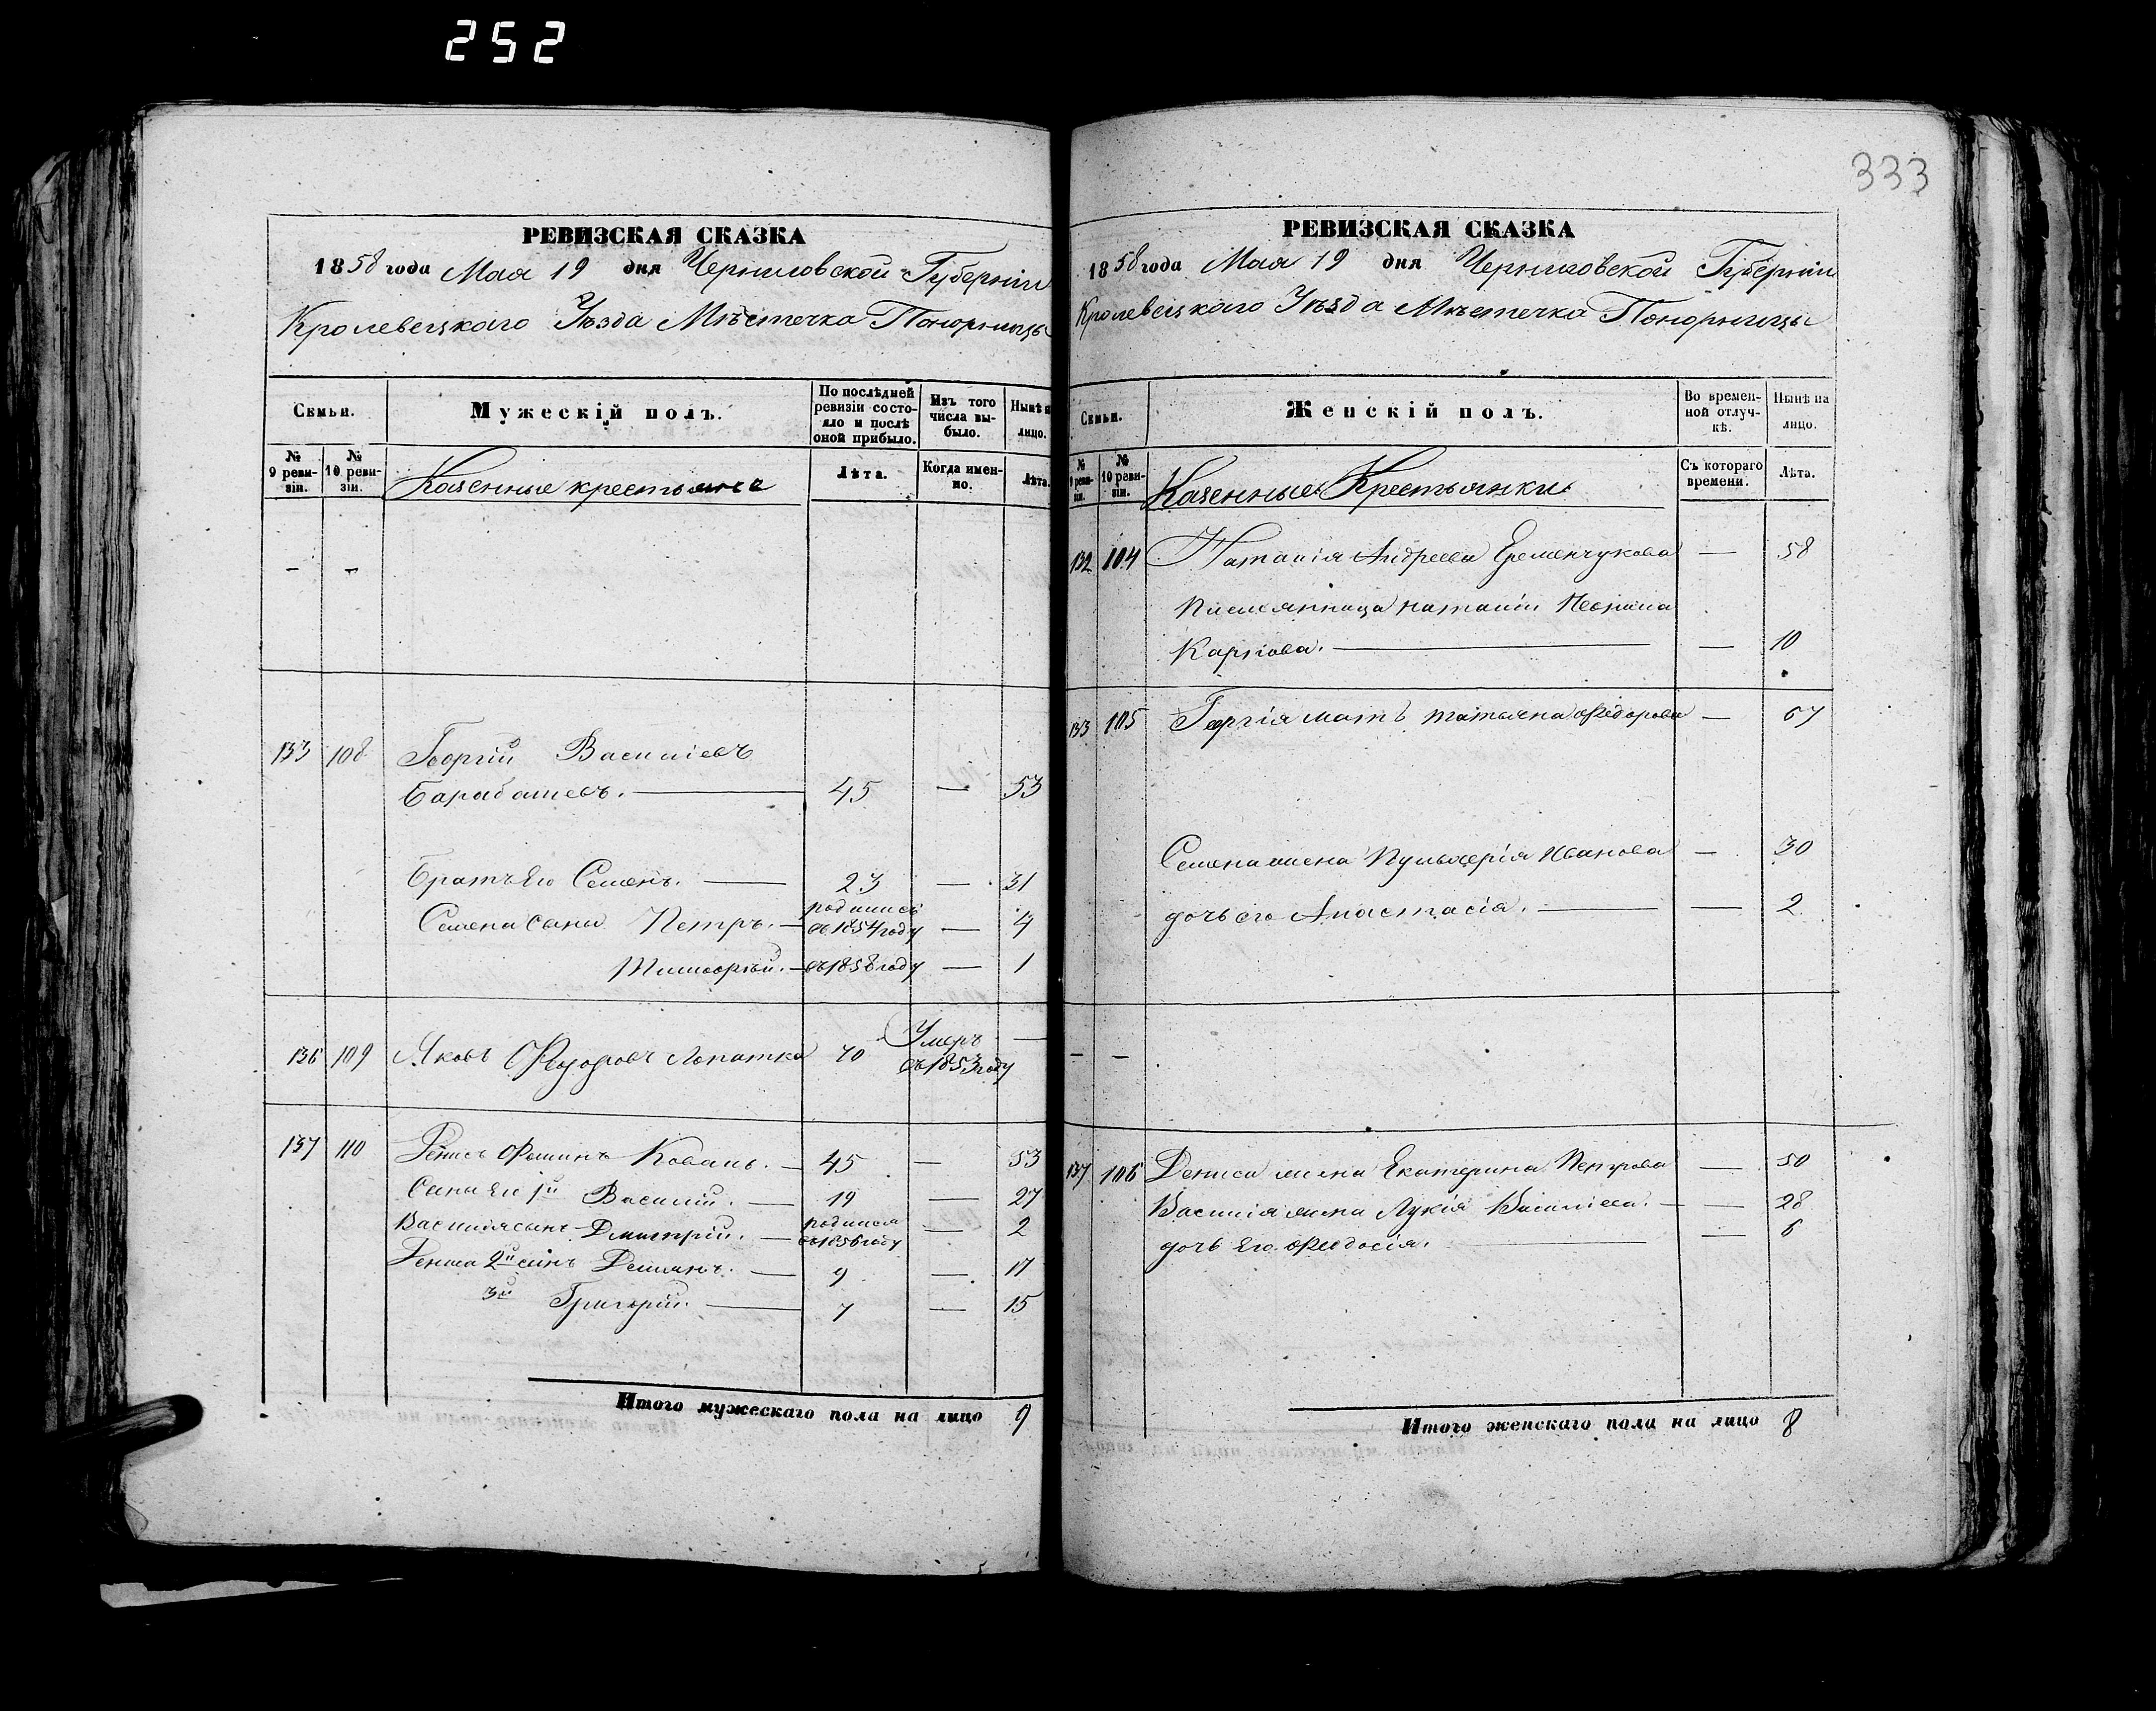 252
333
РЕВИЗСКАЯ СКАЗКА
1858 года Мая 19 дня Черниговской Губерніи
Кролевецкаго Уѣзда Мѣстечка Понорницы
Семьи.
Мужескій полъ.
По послѣдней ревизіи состояло и послѣ оной прибыло.
Изъ того числа выбыло.
Нынѣ на лицо.
№ 9 ревизіи.
№ 10 ревизіи.
Казенные крестьяне
Лѣта.
Когда именно.
Лѣта.
— —
133 108 Георгій Василіевъ
Барабашевъ. 45 — 53
Братъ Его Семенъ. — 23 — 31
Семена сыны Петръ. — родились въ 1854 году — 4
Тимофѣй. — въ 1858 году — 1
136 109 Яковъ Федоровъ Лопатка 70 Умеръ въ 1853 году —
137 110 Денисъ Фоминъ Кобань. — 45 — 53
Сыны Его 1й Василій. — 19 — 27
Василія сынъ Дмитрій. — родился въ 1856 году — 2
Дениса 2й сынъ Демьянъ. — 9 — 17
3й Григорій. — 7 — 15
Итого мужескаго пола на лицо 9
РЕВИЗСКАЯ СКАЗКА
1858 года Мая 19 дня Черниговской Губерніи
Кролевецкаго Уѣзда Мѣстечка Понорницы
Семьи.
Женскій полъ.
Во временной отлучкѣ.
Нынѣ на лицо.
№ 9 ревизіи.
№ 10 ревизіи.
Казенные Крестьянки
Съ котораго времени.
Лѣта.
132 104 Наталія Андреева Еременчукова — 58
племянница наталіи
Карпова. — 10
133 105 Георгія мать татьяна Федорова — 67
Семена жена Пульхерія Иванова — 30
дочь его Анастасія. — 2
— —
137 106 Дениса жена Екатерина Петрова — 50
Василія жена Лукія Василіева. — 28
дочь Его Феодосія. — 6
Итого женскаго пола на лицо 8